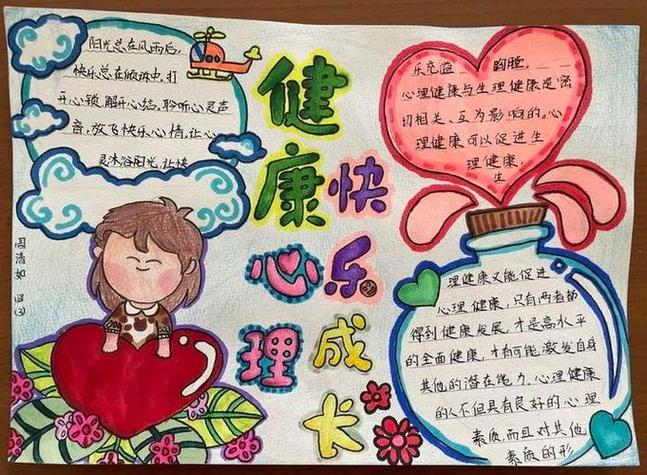 阳光总在风雨后,
快乐总在烦恼中,打
开心锁,解开心结。聆听心灵声
音,放飞快乐心情。让心
灵沐浴阳光,让快
乐充溢 胸脸,
心理健康与生理健康是密
切相关、互为影响的。心
理健康可以促进生
理健康,
生
健康
心理
快乐
成长
理健康又能促进
心理健康,只有两者都
得到健康发展,才是高水平
的全面健康,才有可能激发自身
其他的潜在能力。心理健康
的人不但具有良好的心理
素质,而且对其他
素质的形
周清如 四(3)